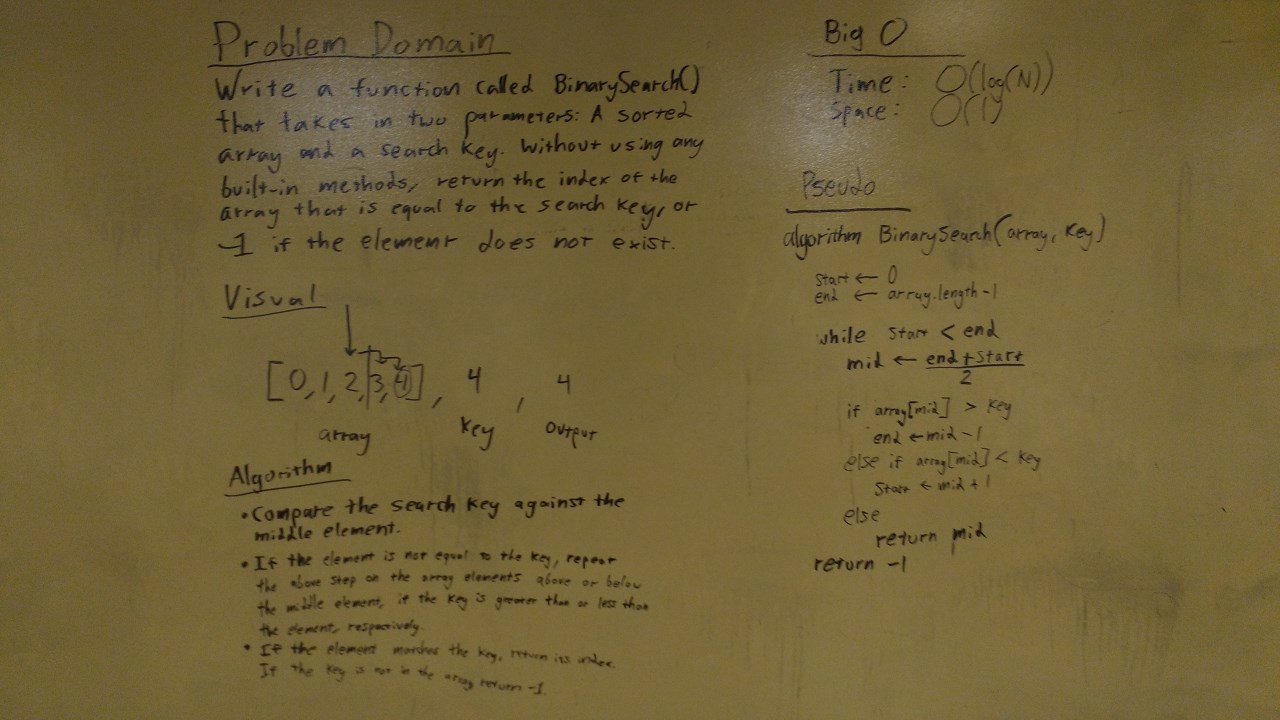 Problem Domain
Write a function called BinarySearch()
that takes in two parameters: A sorted
array and a search key. Without using any
built-in methods, return the index of the
array that is equal to the search key, or
-1 if the element does not exist.
Visual
[0,1,2,3,4], 4, 4
array key output
Algorithm
• Compare the search key against the
middle element.
• If the element is not equal to the key, repeat
the above step on the array elements above or below
the middle element, if the key is greater than or less than
the element, respectively.
• If the element matches the key, return its index.
If the key is not in the array return -1.
Big O
Time: O(log(N))
Space: O(1)
Pseudo
algorithm BinarySearch(array, key)
start ← 0
end ← array.length-1
while start < end
mid ← end + start
2
if array[mid] > key
end ← mid - 1
else if array[mid] < key
start ← mid + 1
else
return mid
return -1